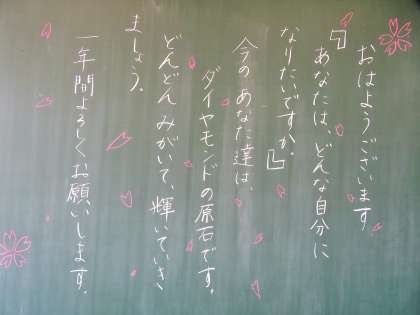 おはようございます
『あなたは、どんな自分に
なりたいですか。』
今のあなた達は、
ダイヤモンドの原石です。
どんどんみがいて、輝いていき
ましょう。
一年間よろしくお願いします。